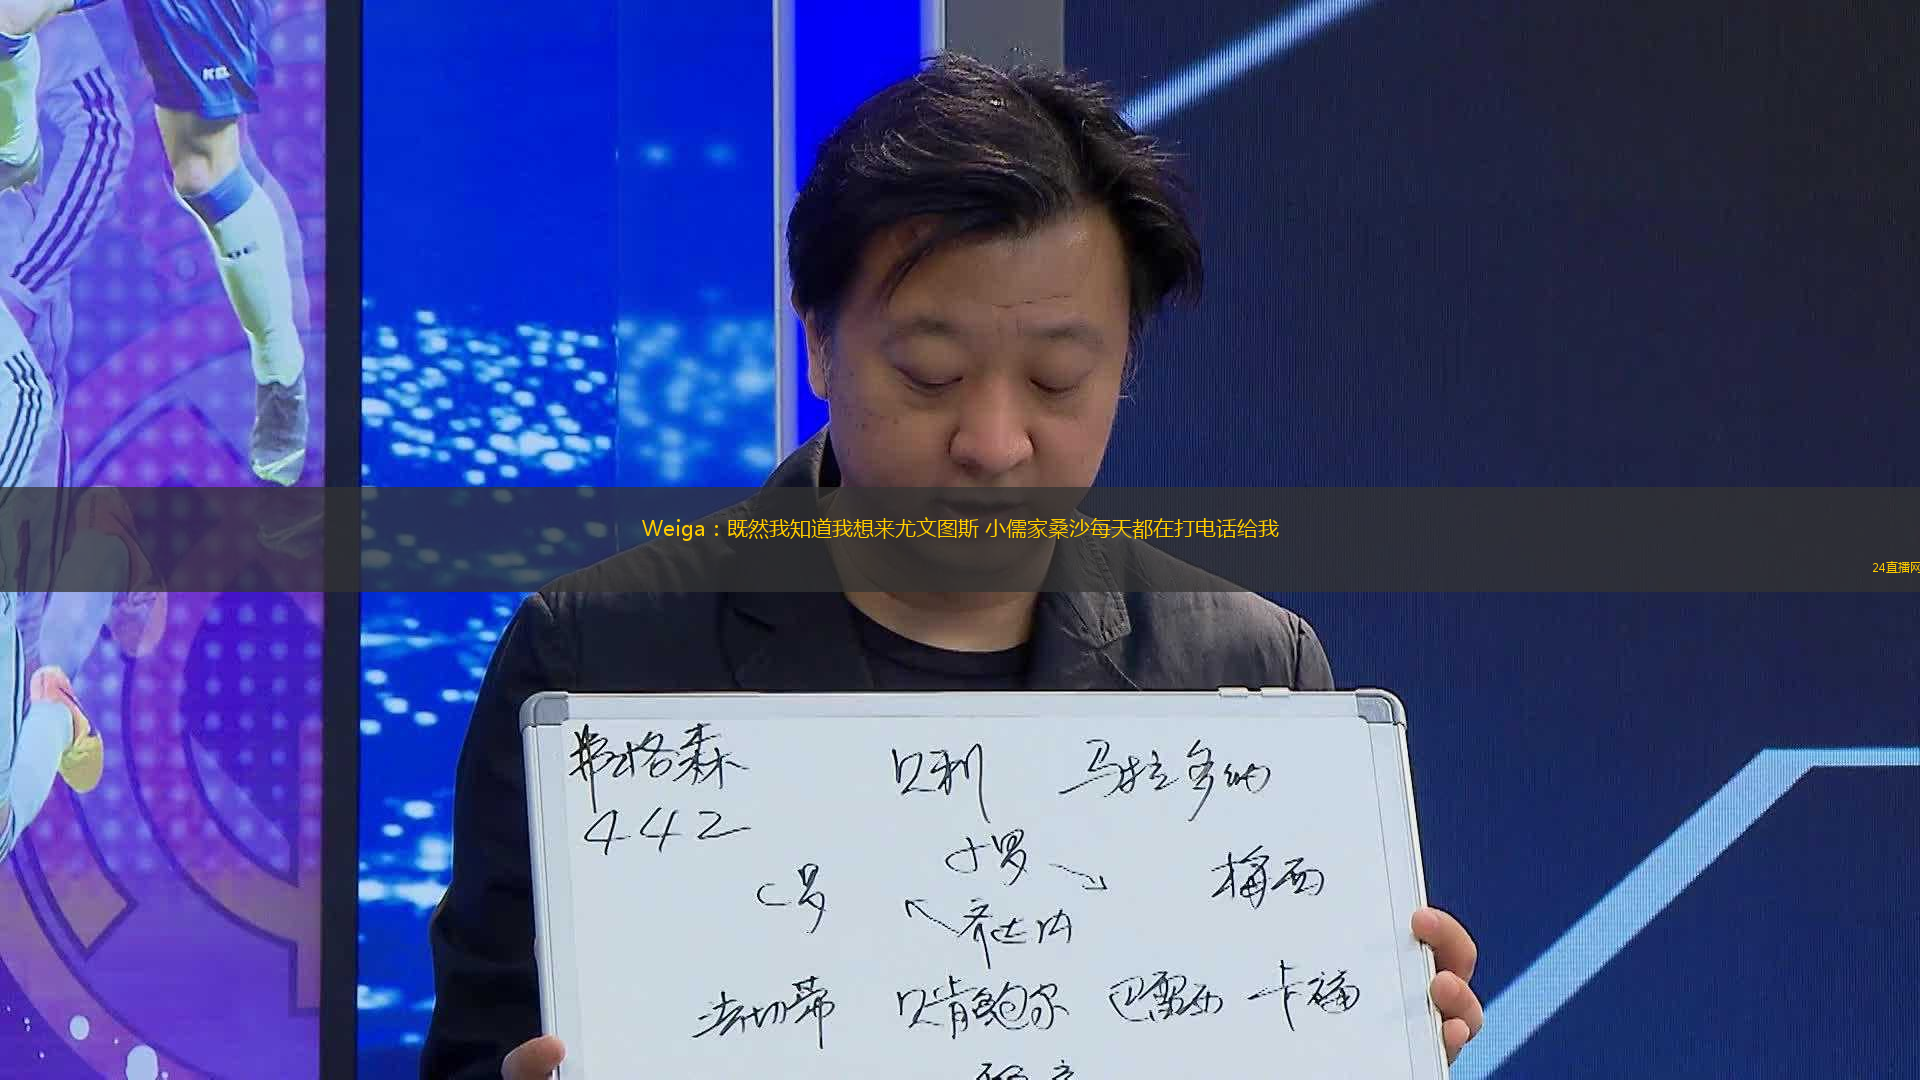 Weiga：既然我知道我想来尤文图斯 小儒家桑沙每天都在打电话给我
24直播网
弗格森 贝利 马拉多纳
442
小罗
C罗 梅西
齐达内
法切蒂 贝肯鲍尔 巴雷西 卡福